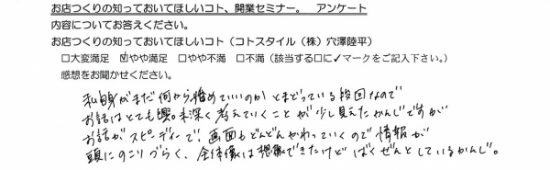 お店つくりの知っておいてほしいコト、開業セミナー。　アンケート
内容についてお答えください。
お店つくりの知っておいてほしいコト（コトスタイル（株）穴澤陸平）
□大変満足　☑やや満足　□やや不満　□不満（該当する□に✓マークをご記入下さい。）
感想をお聞かせください。
私自身がまだ何から始めていいのかとまどっている段階なので
お話はとても興味深く考えていくことが少し見えたかんじですが
お話がスピーディーで、画面もどんどんかわっていくので情報が
頭にのこりづらく、全体像は想像できたけどばくぜんとしているかんじ。